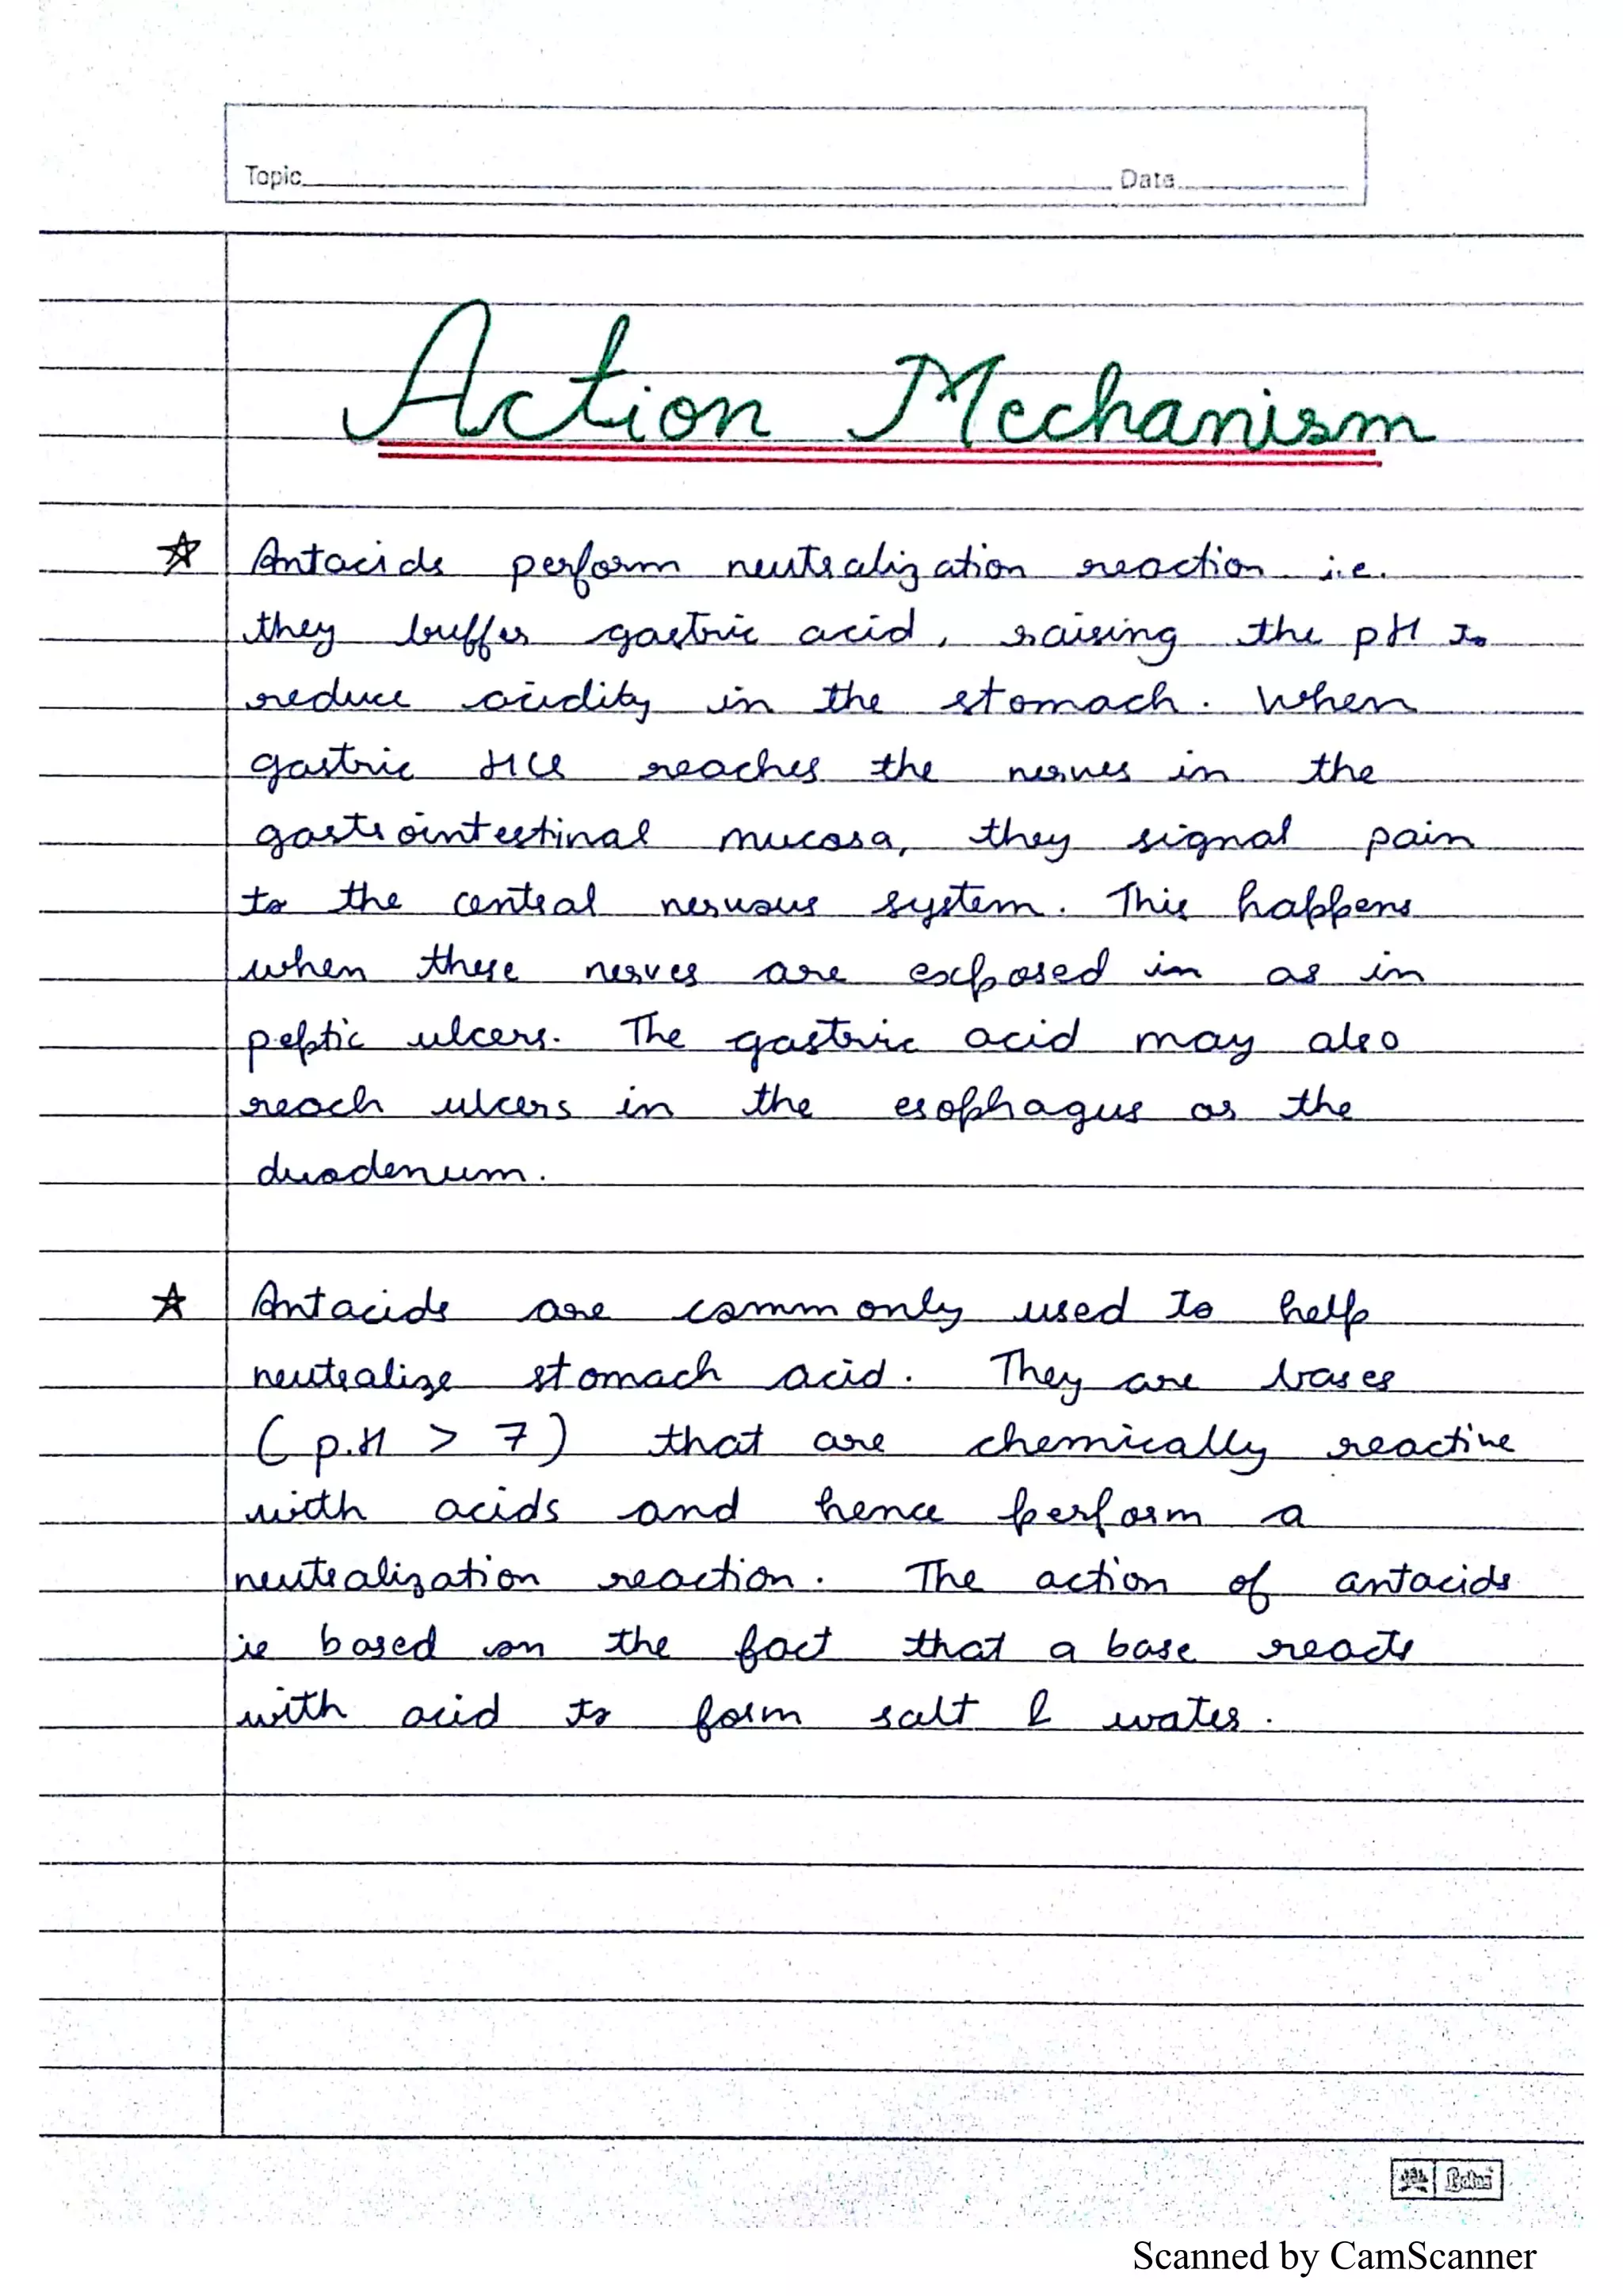 Topic Date
Action Mechanism
☆ Antacids perform neutralization reaction i.e.
they buffer gastric acid, raising the pH to
reduce acidity in the stomach. When
gastric HCl reaches the nerves in the
gastrointestinal mucosa, they signal pain
to the central nervous system. This happens
when these nerves are exposed in as in
peptic ulcers. The gastric acid may also
reach ulcers in the esophagus or the
duodenum.
☆ Antacids are commonly used to help
neutralize stomach acid. They are bases
(p.H > 7) that are chemically reactive
with acids and hence perform a
neutralization reaction. The action of antacids
is based on the fact that a base reacts
with acid to form salt & water.
Scanned by CamScanner